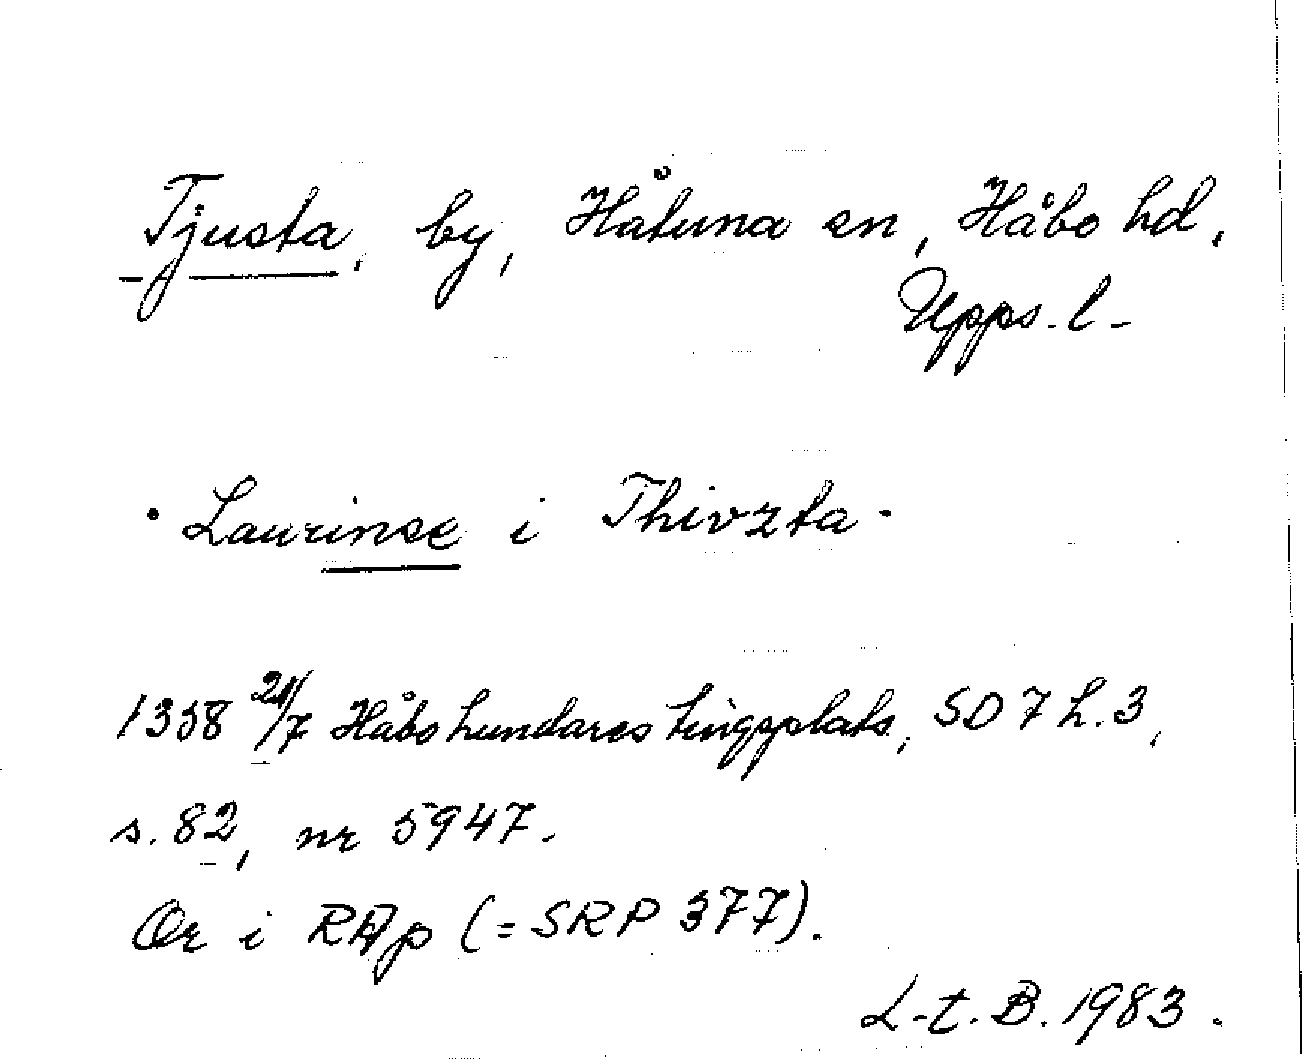 Tjusta, by, Håtuna sn, Håbo hd,
Upps. l.
· Laurinse i Thivzta ·
1358 21/7 Håbo hundares tingsplats, SD 7 h. 3,
s. 82, nr 5947.
Or i RAp (= SRP 377).
L-t. B. 1983.